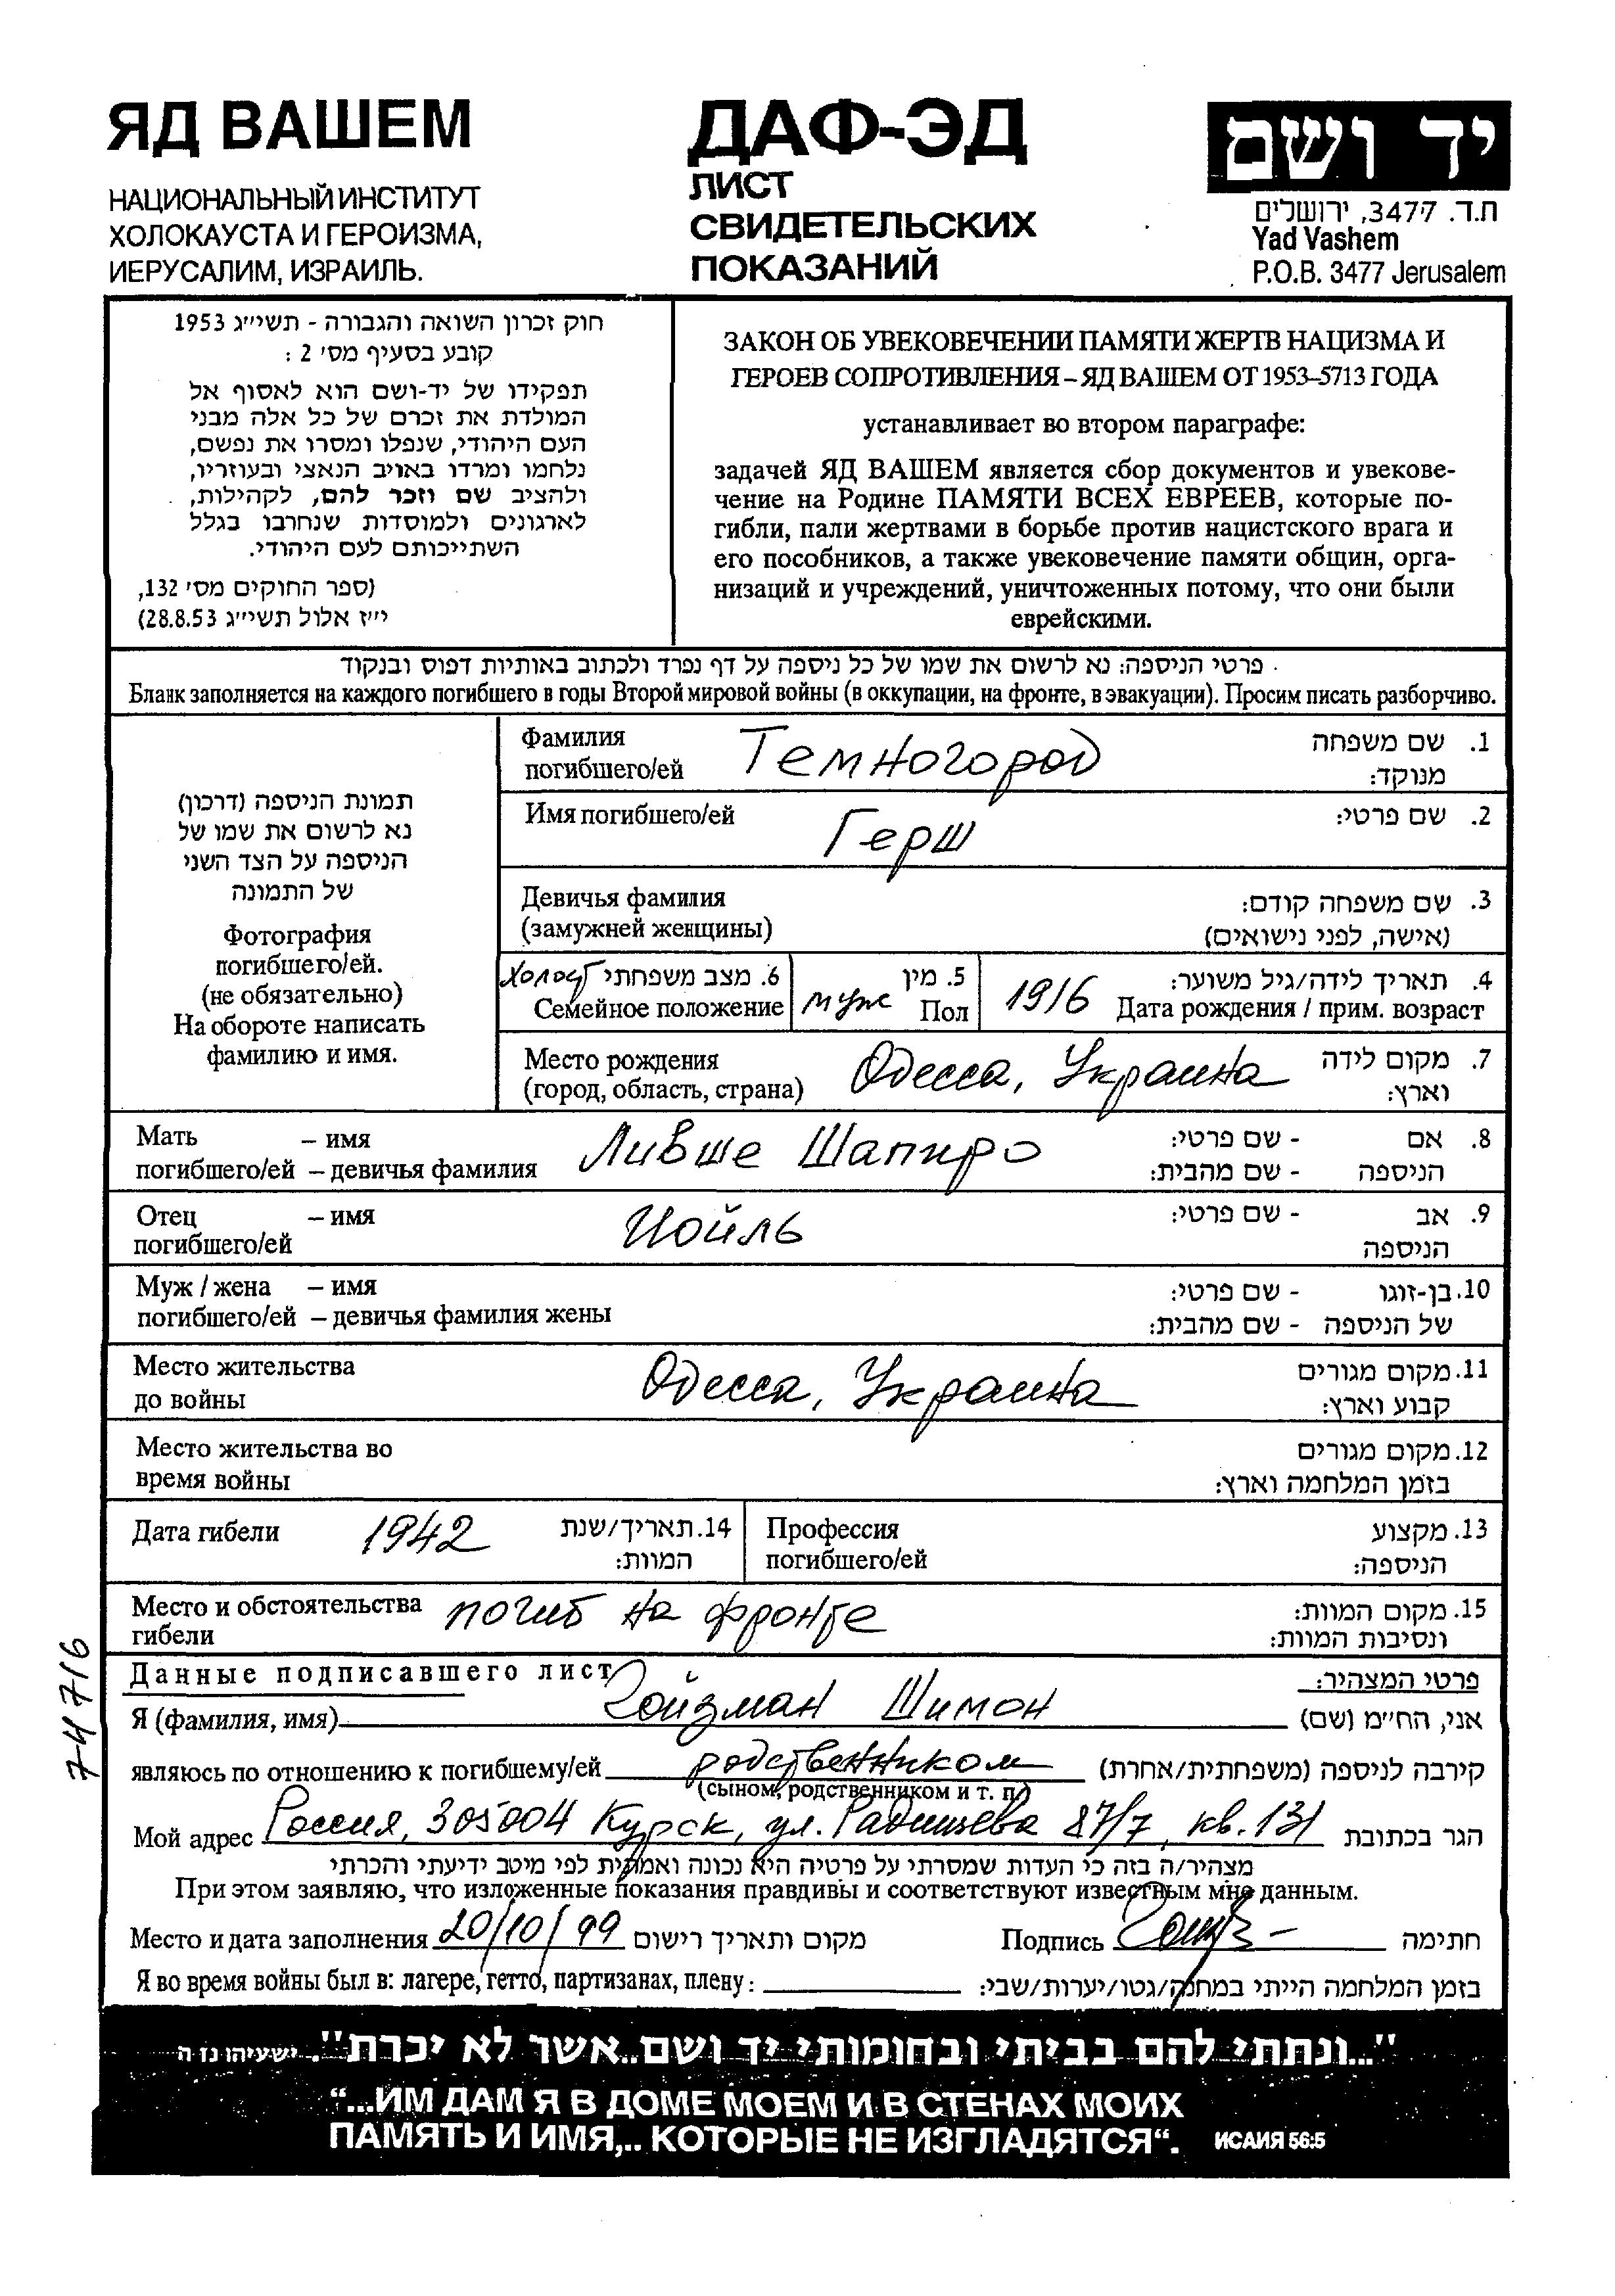 ЯД ВАШЕМ
НАЦИОНАЛЬНЫЙ ИНСТИТУТ
ХОЛОКАУСТА И ГЕРОИЗМА,
ИЕРУСАЛИМ, ИЗРАИЛЬ.
ДАФ-ЭД
ЛИСТ
СВИДЕТЕЛЬСКИХ
ПОКАЗАНИЙ
יד ושם
ת.ד. 3477, ירושלים
Yad Vashem
P.O.B. 3477 Jerusalem
חוק זכרון השואה והגבורה - תשי״ג 1953
קובע בסעיף מס׳ 2 :
תפקידו של יד-ושם הוא לאסוף אל
המולדת את זכרם של כל אלה מבני
העם היהודי, שנפלו ומסרו את נפשם,
נלחמו ומרדו באויב הנאצי ובעוזריו,
ולהציב שם וזכר להם, לקהילות,
לארגונים ולמוסדות שנחרבו בגלל
השתייכותם לעם היהודי.
(ספר החוקים מס׳ 132,
י״ז אלול תשי״ג 28.8.53)
ЗАКОН ОБ УВЕКОВЕЧЕНИИ ПАМЯТИ ЖЕРТВ НАЦИЗМА И
ГЕРОЕВ СОПРОТИВЛЕНИЯ – ЯД ВАШЕМ ОТ 1953–5713 ГОДА
устанавливает во втором параграфе:
задачей ЯД ВАШЕМ является сбор документов и увекове-
чение на Родине ПАМЯТИ ВСЕХ ЕВРЕЕВ, которые по-
гибли, пали жертвами в борьбе против нацистского врага и
его пособников, а также увековечение памяти общин, орга-
низаций и учреждений, уничтоженных потому, что они были
еврейскими.
פרטי הניספה: נא לרשום את שמו של כל ניספה על דף נפרד ולכתוב באותיות דפוס ובנקוד
Бланк заполняется на каждого погибшего в годы Второй мировой войны (в оккупации, на фронте, в эвакуации). Просим писать разборчиво.
תמונת הניספה (דרכון)
נא לרשום את שמו של
הניספה על הצד השני
של התמונה
Фотография
погибшего/ей.
(не обязательно)
На обороте написать
фамилию и имя.
Фамилия Темногород 1. שם משפחה
погибшего/ей מנוקד:
Имя погибшего/ей Герш 2. שם פרטי:
Девичья фамилия 3. שם משפחה קודם:
(замужней женщины) (אישה, לפני נישואים)
холост 6. מצב משפחתי муж 5. מין 1916 4. תאריך לידה/גיל משוער:
Семейное положение Пол Дата рождения / прим. возраст
Место рождения Одесса, Украина 7. מקום לידה
(город, область, страна) וארץ:
Мать – имя Ливше Шапиро 8. אם - שם פרטי:
погибшего/ей – девичья фамилия הניספה - שם מהבית:
Отец – имя Иойль 9. אב - שם פרטי:
погибшего/ей הניספה
Муж / жена – имя 10. בן-זוגו - שם פרטי:
погибшего/ей – девичья фамилия жены של הניספה - שם מהבית:
Место жительства Одесса, Украина 11. מקום מגורים
до войны קבוע וארץ:
Место жительства во 12. מקום מגורים
время войны בזמן המלחמה וארץ:
Дата гибели 1942 14. תאריך/שנת Профессия 13. מקצוע
המוות: погибшего/ей הניספה:
Место и обстоятельства погиб на фронте 15. מקום המוות:
гибели ונסיבות המוות:
74716
Данные подписавшего лист פרטי המצהיר:
Я (фамилия, имя) Гойзман Шимон אני, הח״מ (שם)
являюсь по отношению к погибшему/ей родственником קירבה לניספה (משפחתית/אחרת)
(сыном, родственником и т. п.)
Мой адрес Россия, 305004 Курск, ул. Радищева 87/7, кв. 131 הגר בכתובת
מצהיר/ה בזה כי העדות שמסרתי על פרטיה היא נכונה ואמתית לפי מיטב ידיעתי והכרתי
При этом заявляю, что изложенные показания правдивы и соответствуют известным мне данным.
Место и дата заполнения 20/10/99 מקום ותאריך רישום Подпись חתימה
Я во время войны был в: лагере, гетто, партизанах, плену: בזמן המלחמה הייתי במחנה/גטו/יערות/שבי:
"...ונתתי להם בביתי ובחומותי יד ושם..אשר לא יכרת". ישעיהו נז ה
“...ИМ ДАМ Я В ДОМЕ МОЕМ И В СТЕНАХ МОИХ
ПАМЯТЬ И ИМЯ,.. КОТОРЫЕ НЕ ИЗГЛАДЯТСЯ“. ИСАИЯ 56:5